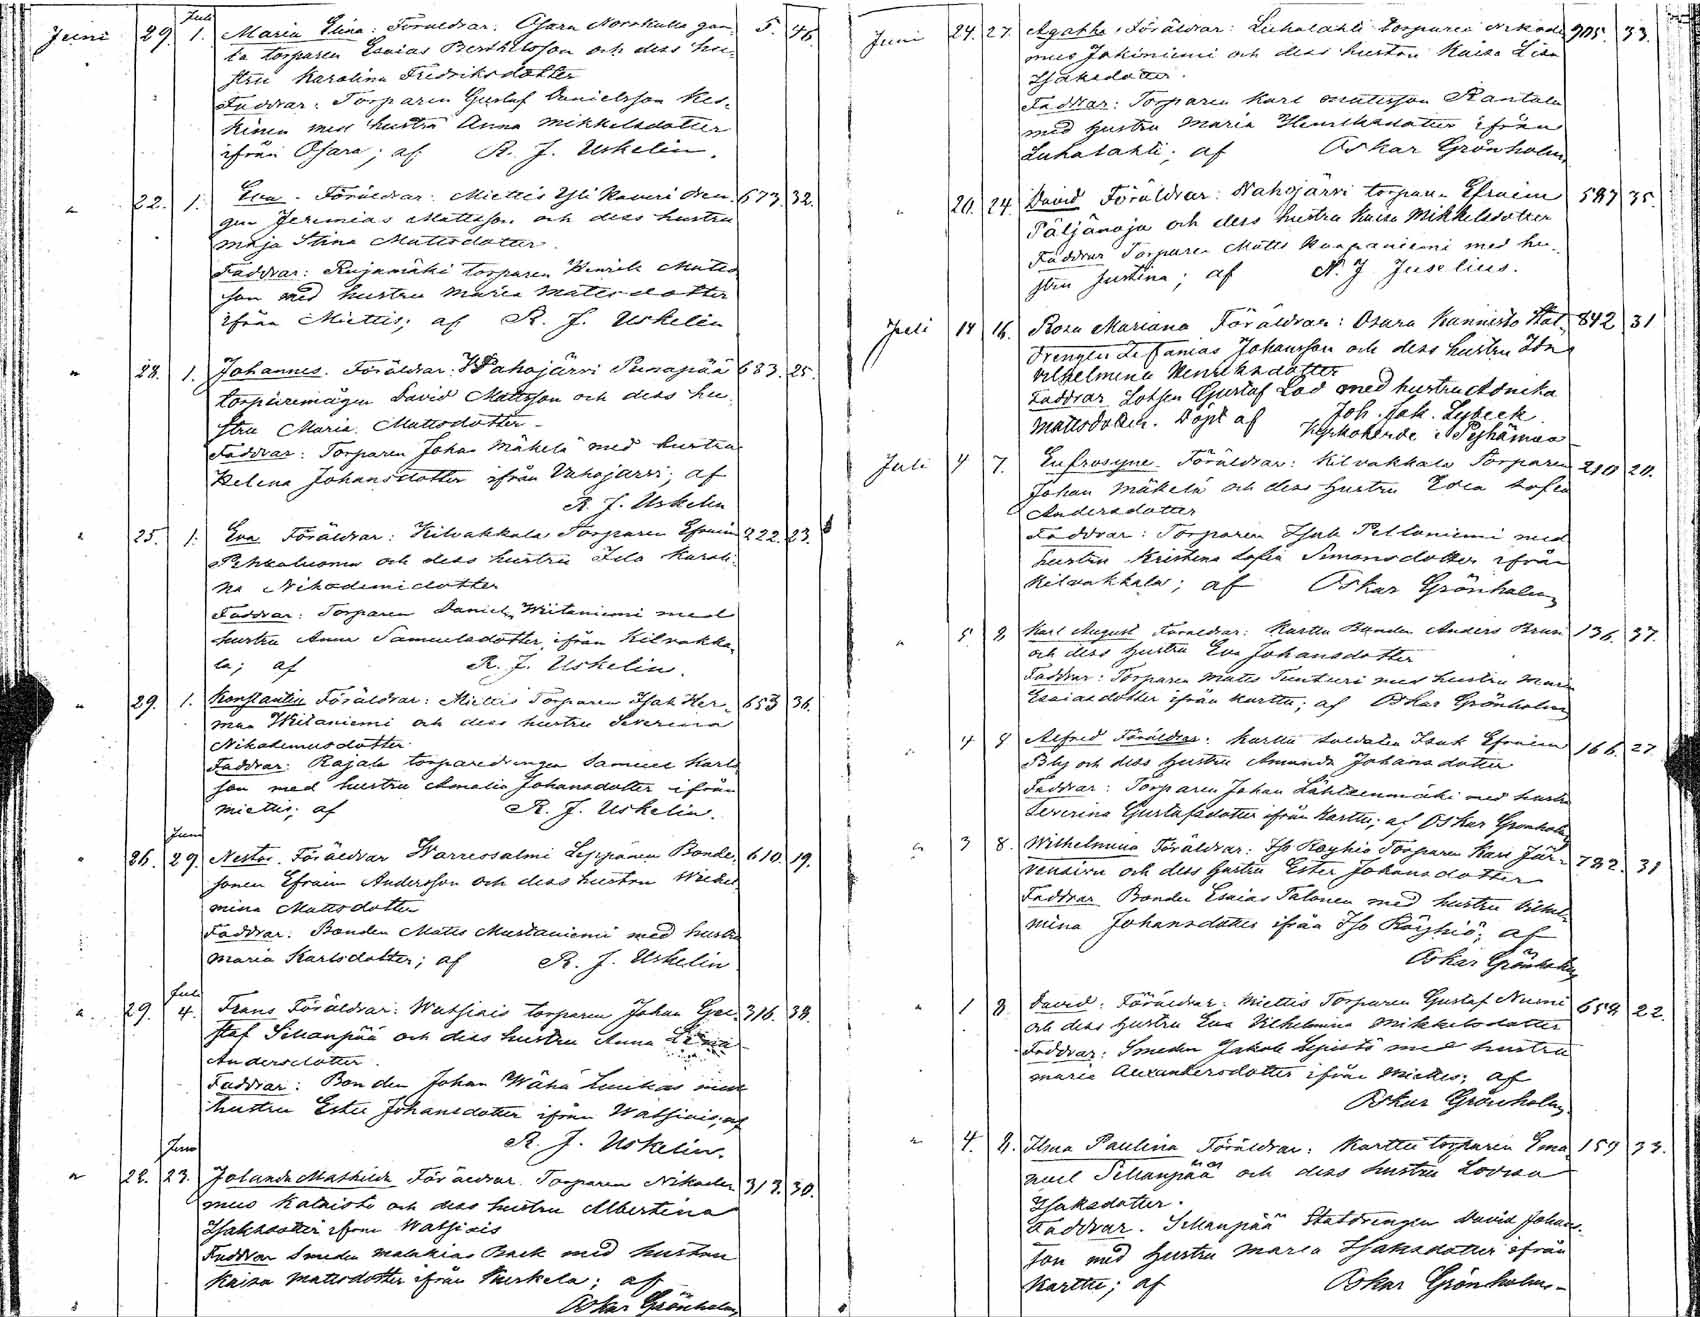 Juni 29. Juli 1. Maria Elina. Föräldrar: Osara Norrkulla gam- 5. 46.
la torparen Esaias Berthelsson och dess hu-
stru Karolina Fredriksdotter
Faddrar: Torparen Gustaf Danielsson Kes-
kinen med hustru Anna Mikkelsdotter
ifrån Osara; af R. J. Uskelin.
" 22. 1. Eva. Föräldrar: Miettis Yli Kaveri dren- 673. 32.
gen Jeremias Mattsson och dess hustru
Maja Stina Mattsdotter.
Faddrar: Rajamäki torparen Henrik Matts
son med hustru Maria Mattsdotter
ifrån Miettis; af R. J. Uskelin
" 28. 1. Johannes. Föräldrar: Wahojärvi Punapää 683. 25.
torparemågen David Mattsson och dess hu-
stru Maria Mattsdotter.
Faddrar: Torparen Johan Mäkelä med hustru
Helena Johansdotter ifrån Vahojärvi; af
R. J. Uskelin
" 25. 1. Eva Föräldrar: Kilvakkala Torparen Efraim 222. 23.
Pehkuluoma och dess hustru Ida Karoli-
na Nikodemidotter
Faddrar: Torparen Daniel Wiitaniemi med
hustru Anna Samuelsdotter, ifrån Kilvakka-
la; af R. J. Uskelin.
" 29. 1. Konstantin Föräldrar: Miettis Torparen Isak Her- 653 36.
man Wiitaniemi och dess hustru Severina
Nikodemusdotter.
Faddrar: Rajala torparedrengen Samuel Karls
son med hustru Amalia Johansdotter ifrån
Miettis; af R. J. Uskelin.
" 26. Juni 29. Nestor. Föräldrar Warressalmi Leppänen Bonde- 610. 19.
sonen Efraim Andersson och dess hustru Wilhel
mina Mattsdotter
Faddrar: Bonden Matts Mustaniemi med hustru
Maria Karlsdotter; af R. J. Uskelin
" 29. Juli 4. Frans Föräldrar: Watsiais torparen Johan Gu- 316. 38.
staf Sillanpää och dess hustru Anna
Andersdotter.
Faddrar: Bonden Johan Wähä Luukas med
hustru Ester Johansdotter ifrån Watsiais; af
R. J. Uskelin.
" 22. Juni 23. Jolanda Mathilda Föräldrar. Torparen Nikode 313. 30.
mus Katajisto och dess hustru Albertina
Isaksdotter ifrån Watsiais
Faddrar Smeden Malakias Back med hustrun
Kaisa Mattsdotter ifrån Kurkela; af
Oskar Grönholm
Juni 24. 27. Agatha. Föräldrar: Luhalahti torparen Nikode 905. 33.
mus Jokiniemi och dess hustru Kaisa Lisa
Isaksdotter.
Faddrar: Torparen Karl Mattsson Rantala
med hustru Maria Henriksdotter ifrån
Luhalahti; af Oskar Grönholm
" 20. 24. David Föräldrar: Wahojärvi torpar. Efraim 587 35.
Päljänoja och dess hustru Kaisa Mikkelsdotter
Faddrar Torparen Matts Kuapaniemi med hu-
stru Justina; af N. J Juselius.
Juli 14 16. Rosa Mariana Föräldrar: Osara Kannisto Stat- 842 31
drengen Zefanias Johansson och dess hustru Ida
Vilhelmina Henriksdotter
Faddrar Lotsen Gustaf Lod med hustru Monika
Mattsdotter. Döpt af Joh. Jak. Lybeck
Kyrkoherde i Pyhämaa
Juli 4 7. Eufrosyne. Föräldrar: Kilvakkala Torparen 210 20.
Johan Mäkelä och dess hustru Eva Sofia
Andersdotter
Faddrar: Torparen Isak Peltoniemi med
hustru Kristina Sofia Simonsdotter ifrån
Kilvakkala; af Oskar Grönholm
" 5 8 Karl August Föräldrar: Karttu Bonden Anders Bruni 136. 37.
och dess hustru Eva Johansdotter
Faddrar: Torparen Matts Tunturi med hustru Maria
Esaiasdotter ifrån Karttu; af Oskar Grönholm
" 4 8 Alfred Föräldrar: Karttu soldaten Isak Efraim 166. 27
Bly och dess hustru Amanda Johansdotter
Faddrar: Torparen Johan Lähteenmäki med hustru
Severina Gustafsdotter ifrån Karttu; af Oskar Grönholm
" 3 8. Wilhelmina Föräldrar: Iso Röyhiö Torparen Karl Jär- 782. 31
vensivu och dess hustru Ester Johansdotter
Faddrar Bonden Esaias Talonen med hustru Vilhel-
mina Johansdotter ifrån Iso Röyhiö; af
Oskar Grönholm
" 1 8 David. Föräldrar: Miettis Torparen Gustaf Nurmi 659. 22.
och dess hustru Eva Vilhelmina Mikkelsdotter
Faddrar: Smeden Jakob Lepistö med hustru
Maria Alexandersdotter ifrån Miettis; af
Oskar Grönholm
" 4. 8. Elma Paulina Föräldrar: Karttu torparen Ema 159 33.
nuel Sillanpää och dess hustru Lovisa
Isaksdotter.
Faddrar. Sillanpää Statdrengen David Johans-
son med hustru Maria Isaksdotter ifrån
Karttu; af Oskar Grönholm